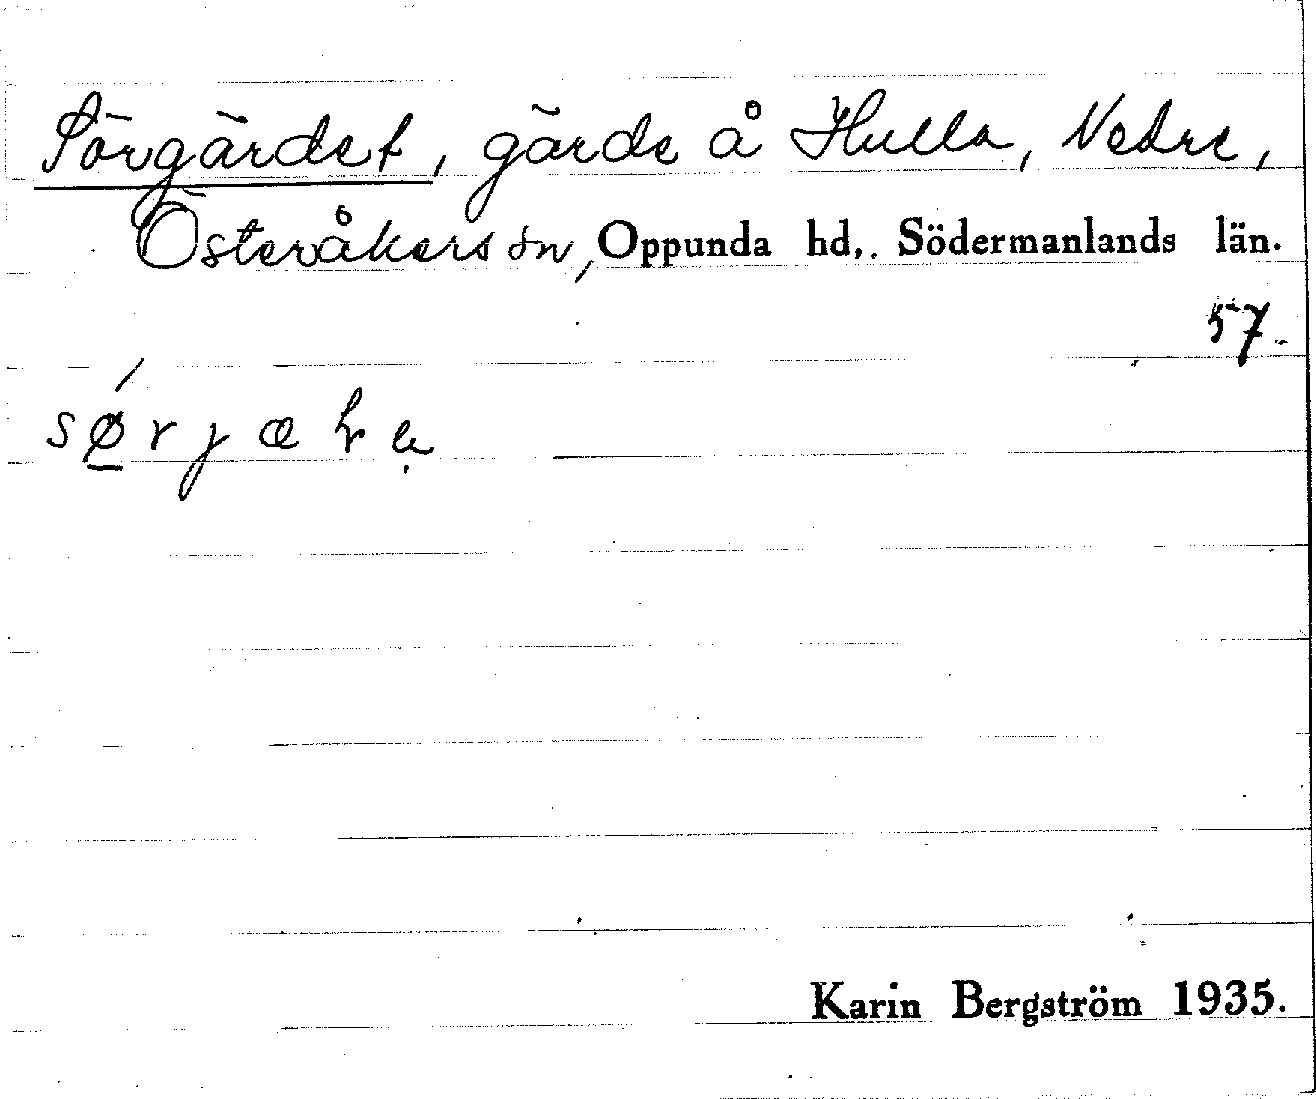 Sörgärdet, gärde å Hulla, Nedre,
Österåkers sn, Oppunda hd,. Södermanlands län.
57.
Karin Bergström 1935.